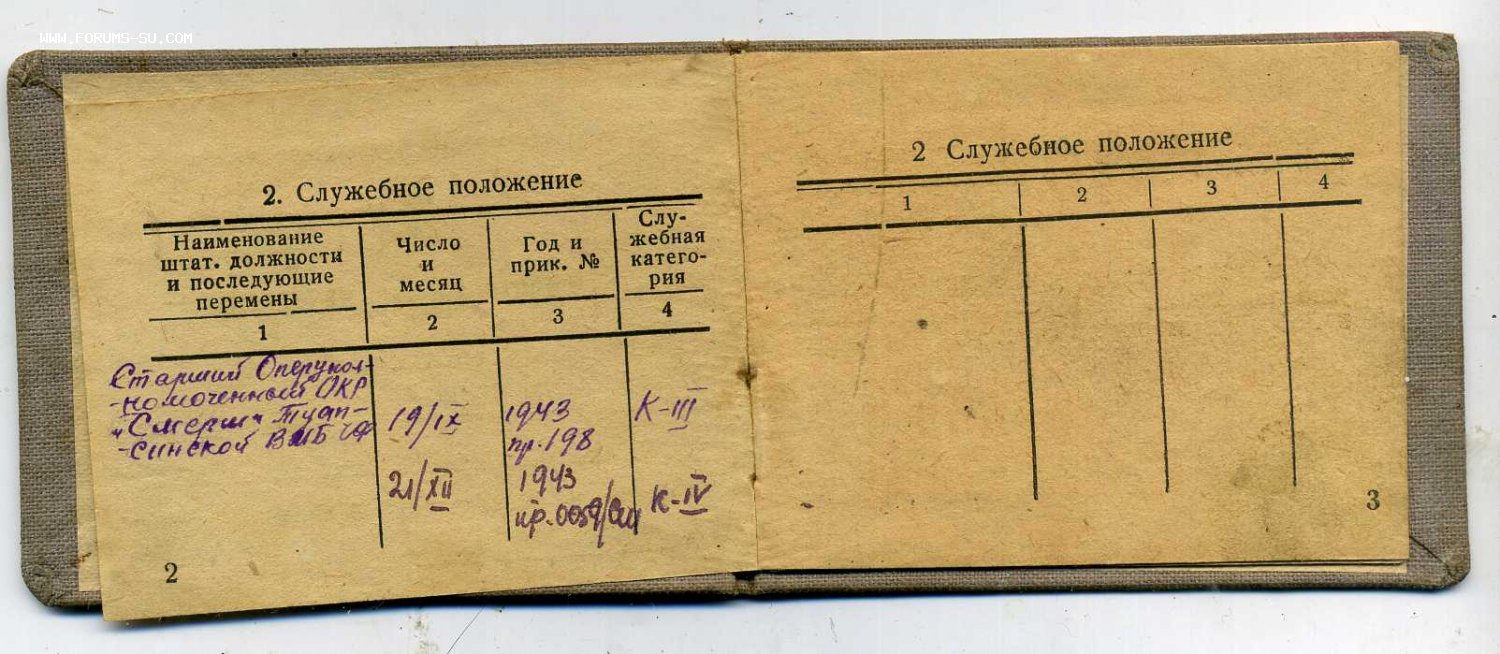 WWW.FORUMS-SU.COM
2. Служебное положение
Наименование штат. должности и последующие перемены
Число и месяц
Год и прик. №
Слу-жебная катего-рия
1 2 3 4
Старший Оперупол-
-номоченный ОКР
"Смерш" Туап-
-синской ВМБ ЧФ
19/IX 1943 К-III
пр. 198
21/XII 1943 К-IV
пр. 0059/см
2
2 Служебное положение
1 2 3 4
3